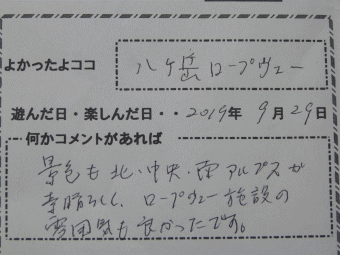 よかったよココ
八ヶ岳ロープウェー
遊んだ日・楽しんだ日・・2019年 9月29日
何かコメントがあれば
景色も北・中央・南アルプスが
素晴らしく、ロープウェー施設の
雰囲気も良かったです。